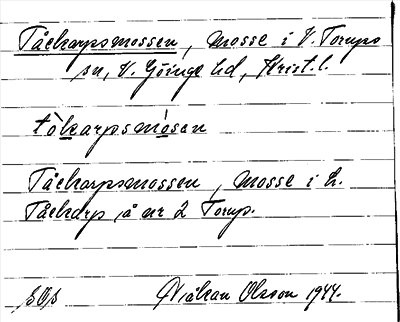 Tåckarpsmossen, mosse i V. Torups
sn, V. Göinge hd, Krist. l.
tòkarpsmósen
Tåckarpsmossen, mosse i h.
Tåckarp, å nr 2 Torup.
Håkan Olsson 1944.